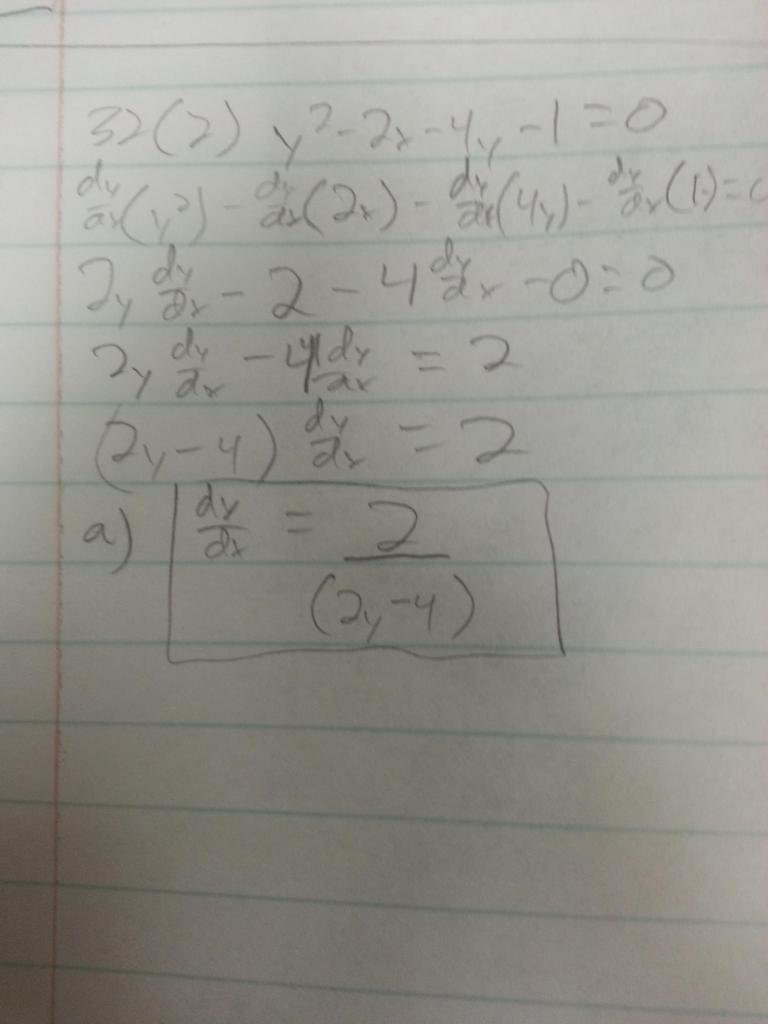 32(2) y²-2x-4y-1=0
dy/dx(y²) - dy/dx(2x) - dy/dx(4y) - dy/dx(1)=0
2y dy/dx - 2 - 4 dy/dx - 0 = 0
2y dy/dx - 4 dy/dx = 2
(2y-4) dy/dx = 2
a) dy/dx = 2/(2y-4)